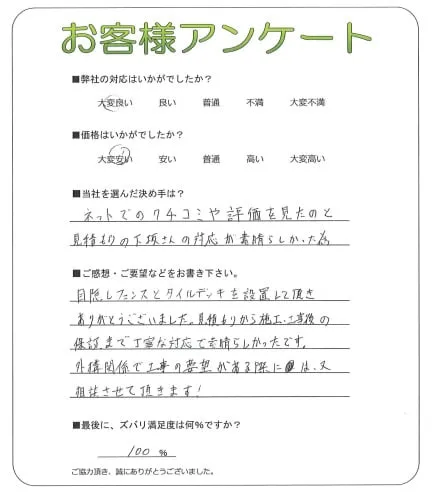 お客様アンケート
■弊社の対応はいかがでしたか？
大変良い 良い 普通 不満 大変不満
■価格はいかがでしたか？
大変安い 安い 普通 高い 大変高い
■当社を選んだ決め手は？
ネットでのクチコミや評価を見たのと
見積もりの下坂さんの対応が素晴らしかった為
■ご感想・ご要望などをお書き下さい。
目隠しフェンスとタイルデッキを設置して頂き
ありがとうございました。見積もりから施工、工事後の
保証まで丁寧な対応で素晴らしかったです。
外構関係で工事の要望がある際には、又
相談させて頂きます！
■最後に、ズバリ満足度は何%ですか？
100 %
ご協力頂き、誠にありがとうございました。